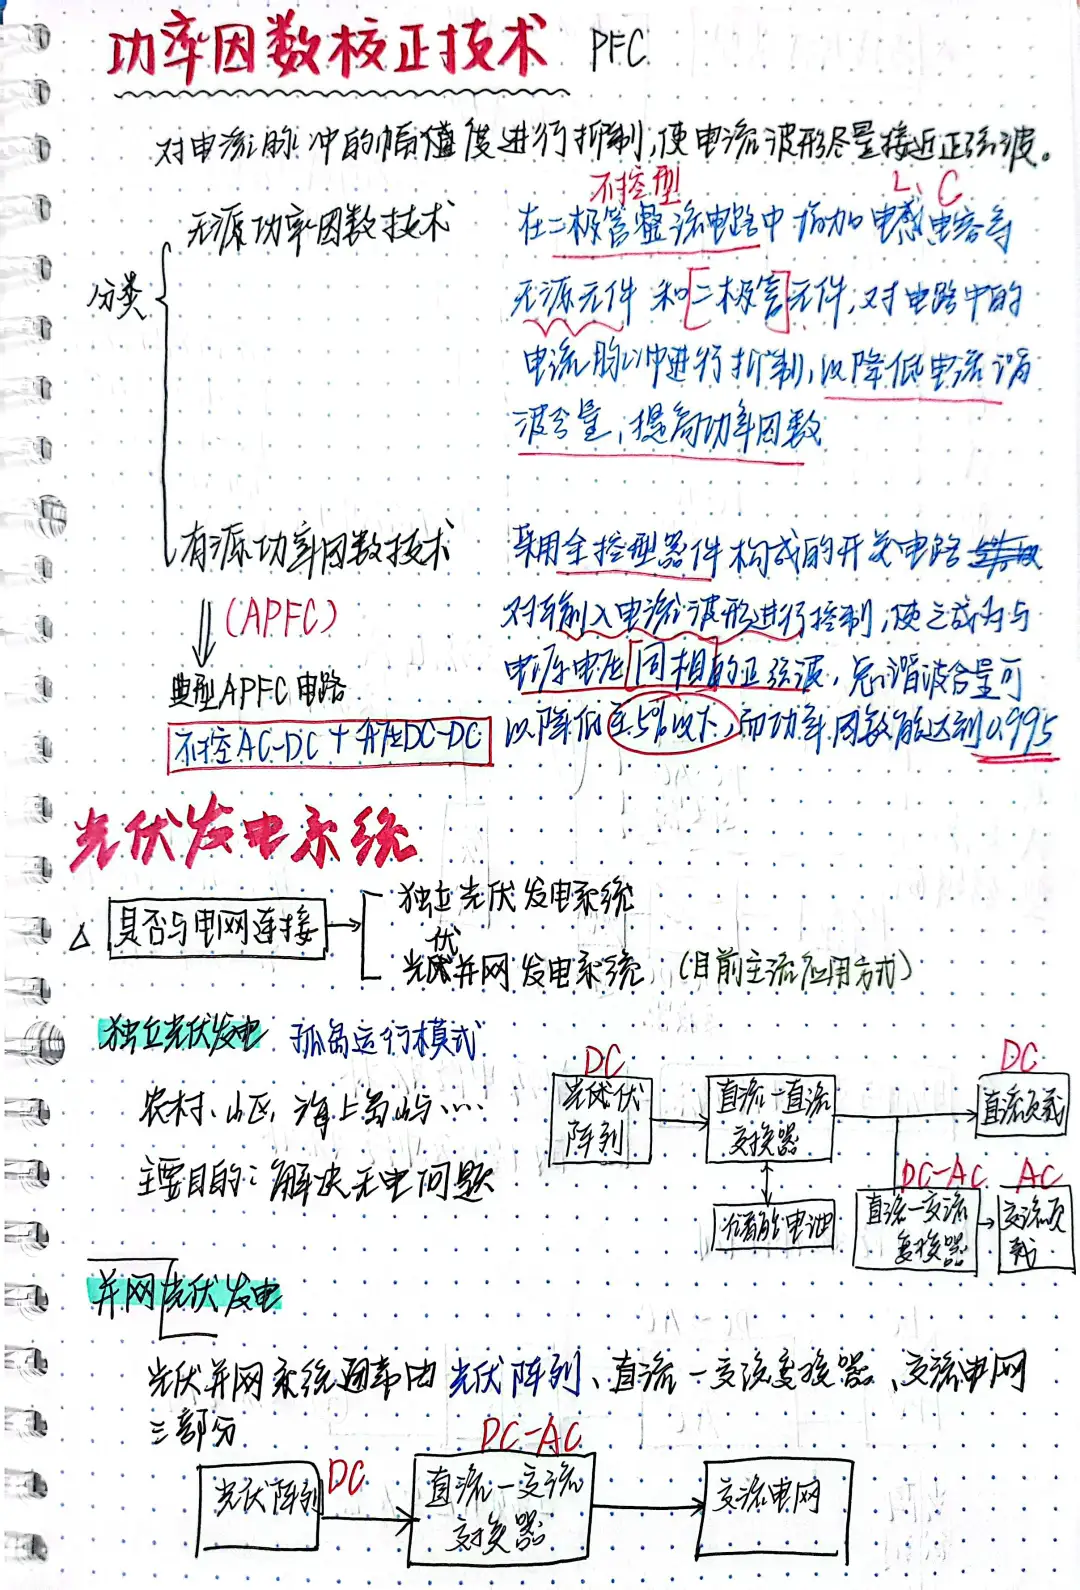 功率因数校正技术 PFC
对电流脉冲的幅值度进行抑制,使电流波形尽量接近正弦波。
不控型 L、C
分类
无源功率因数技术
在二极管整流电路中增加电感电容等
无源元件和二极管元件,对电路中的
电流脉冲进行抑制,以降低电流谐
波含量,提高功率因数
有源功率因数技术
(APFC)
典型APFC电路
不控AC-DC+升压DC-DC
采用全控型器件构成的开关电路
对输入电流波形进行控制,使之成为与
电源电压同相的正弦波,总谐波含量可
以降低至5%以下,而功率因数能达到0.995
光伏发电系统
△ 是否与电网连接
独立光伏发电系统
伏
光伏并网发电系统 (目前主流应用方式)
独立光伏发电 孤岛运行模式
农村、山区、海上岛屿……
主要目的:解决无电问题
DC
光伏
阵列
直流-直流
变换器
DC
直流负载
储能电池
DC-AC
直流-交流
变换器
AC
交流负
载
并网光伏发电
光伏并网系统通常由光伏阵列、直流-交流变换器、交流电网
三部分
光伏阵列
DC
DC-AC
直流-交流
变换器
交流电网